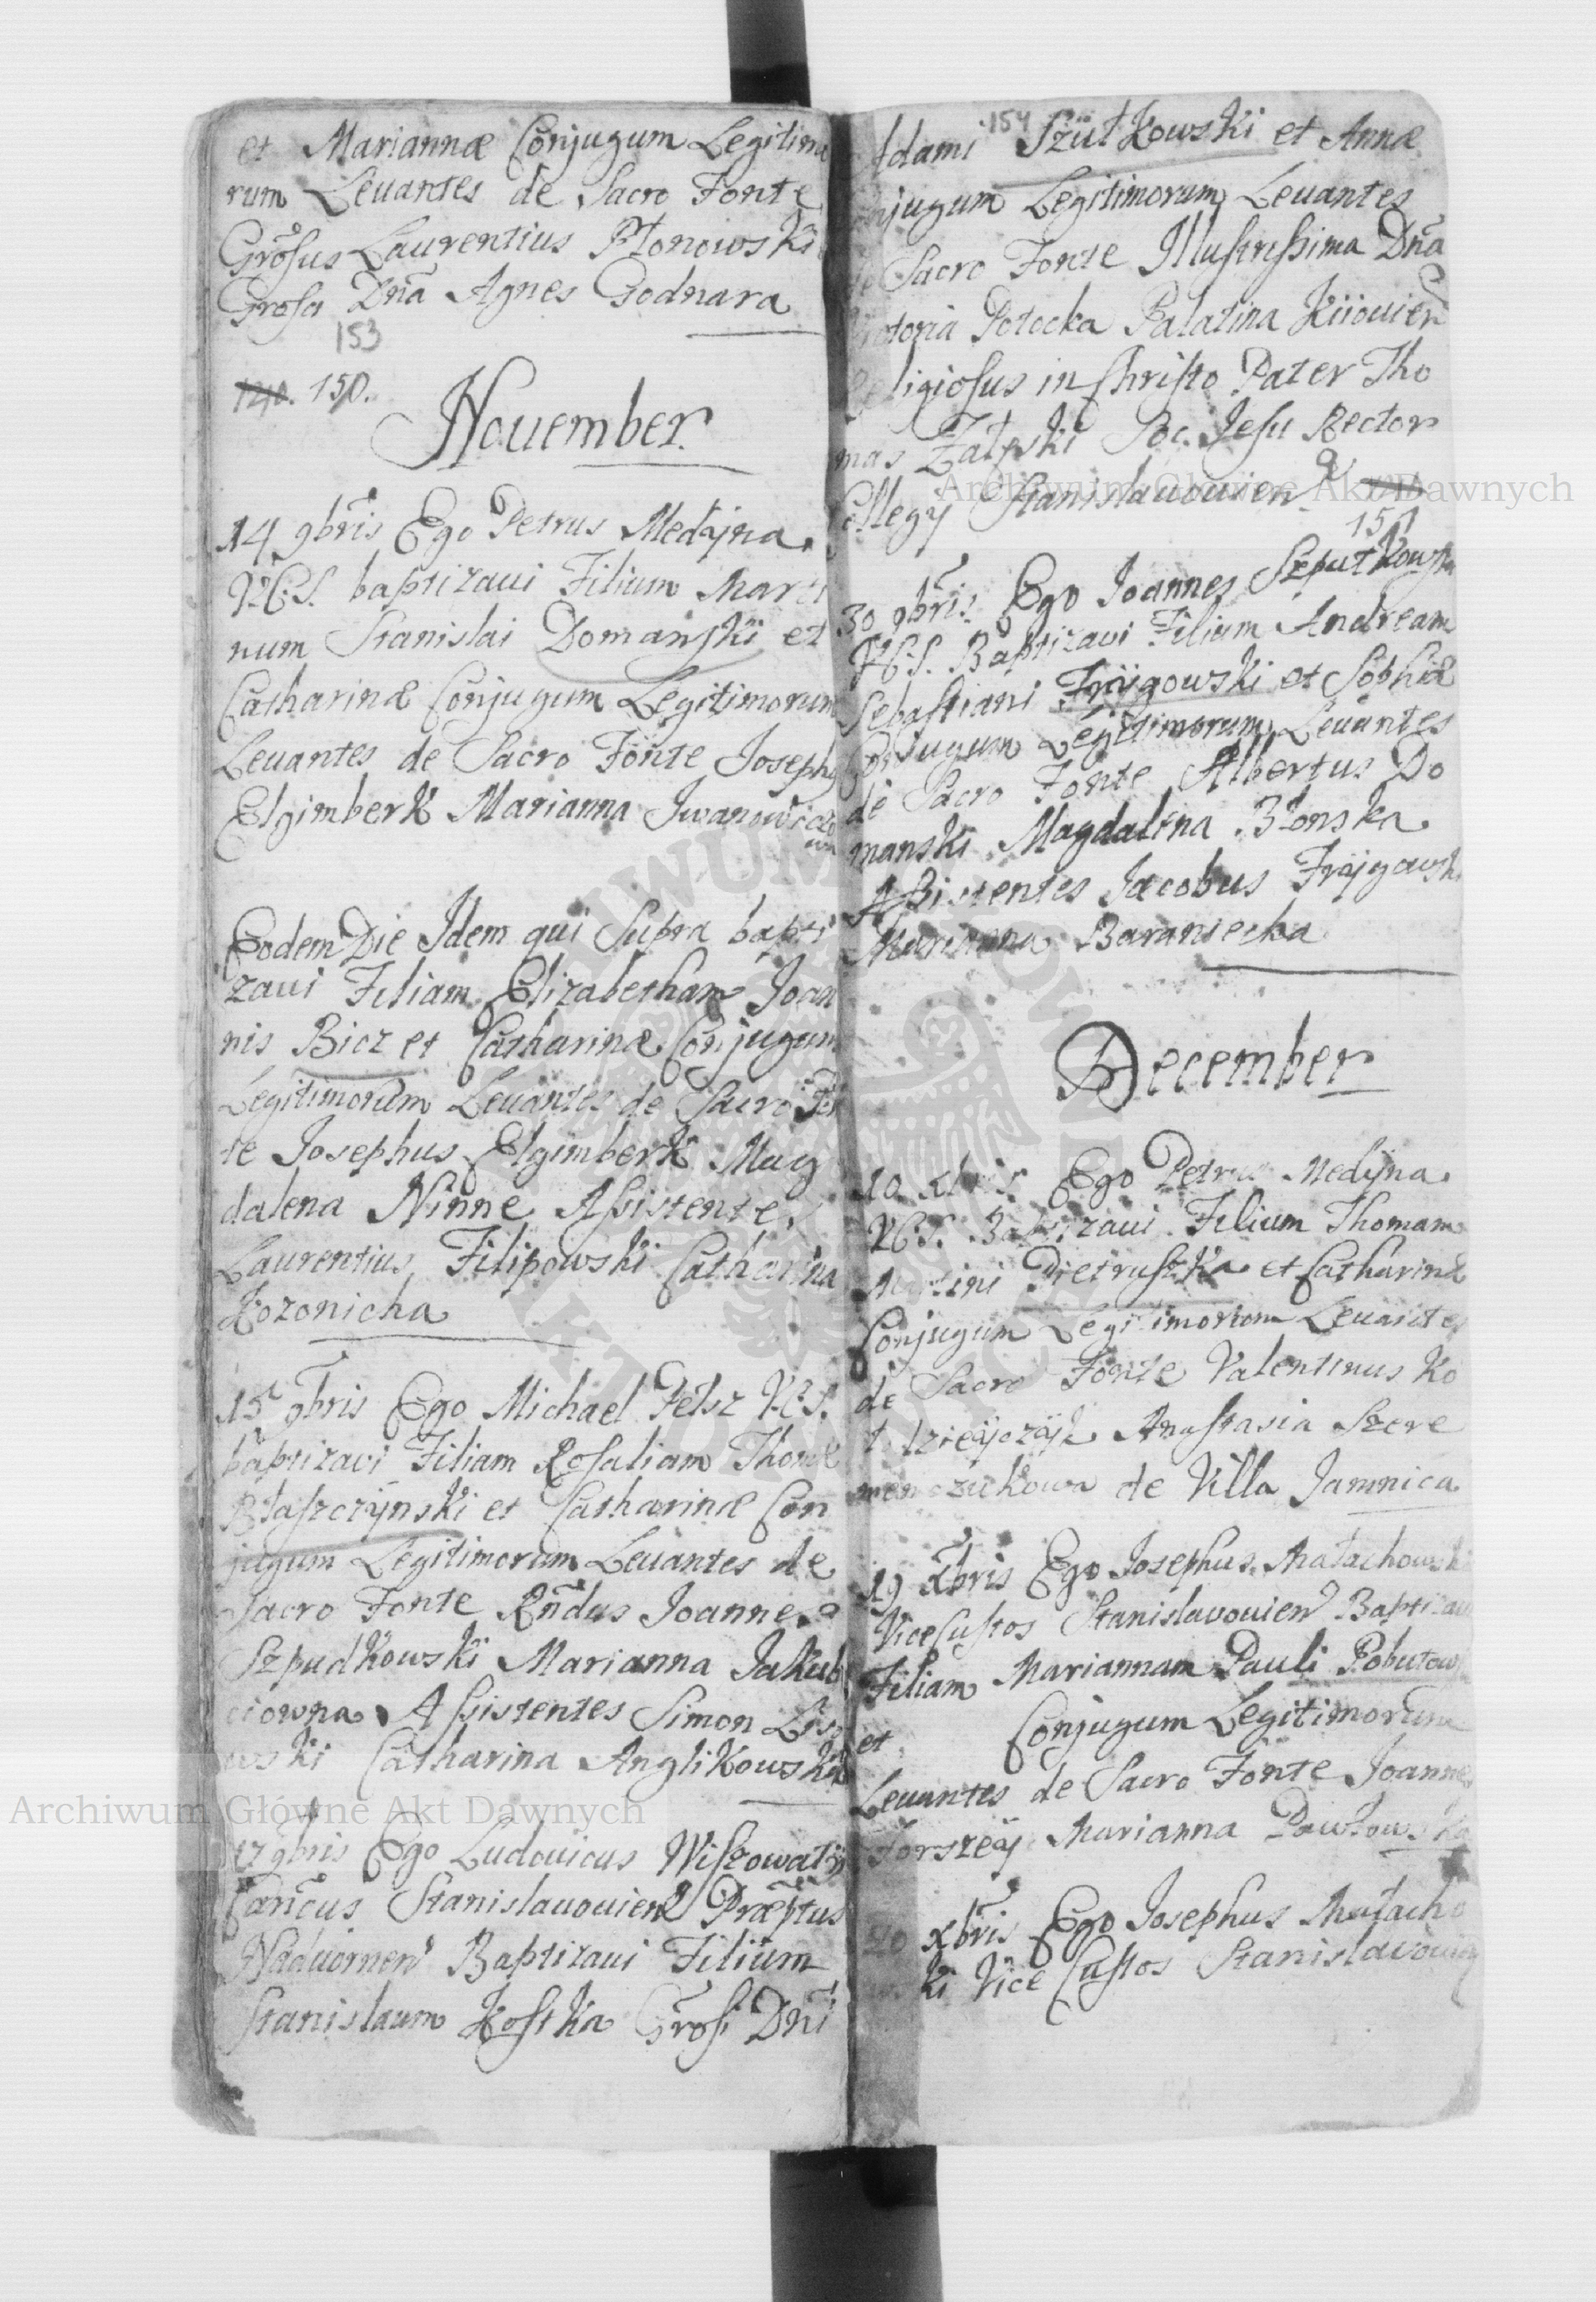 et Mariannæ Conjugum Legitimo
rum Leuantes de Sacro Fonte
Grosus Laurentius Płonowski
Grosa Dna Agnes Godnara
153
140. 150.
Nouember.
14 9bris Ego Petrus Medÿna
V.C.S. baptizaui Filium Marti
num Stanislai Domanski et
Catharinæ Conjugum Legitimorum
Leuantes de Sacro Fonte Joseph
Elgimberk Marianna Jwanowiczo
wa
Eodem Die Jdem qui Supra bapti
zaui Filiam Elizabetham Joan
nis Bicz et Catharinæ Conjugum
Legitimorum Leuantes de Sacro Fon
te Josephus Elgimberk Mag
dalena Ninne Assistente
Laurentius Filipowski Catharina
Kozonicha
15 9bris Ego Michael Felsz V.C.S.
baptizavi Filiam Rosaliam Thomæ
Błaszczÿnski et Catharinæ Con
jugum Legitimorum Leuantes de
Sacro Fonte Rndus Joannes
Szpudkowski Marianna Jakub
ciowna Assistentes Simon Liso
wski Catharina Anglikowska
17 9bris Ego Ludouicus Wiszowatÿ
Cancus Stanislauouien Præptus
Naduornen Baptizaui Filium
Stanislaum Kostka Grosi Dni
154
Adami Szutkowski et Annæ
Conjugum Legitimorum Leuantes
de Sacro Fonte Jllustrissima Dna
Victoria Potocka Palatina Kiiouien
Religiosus in Christo Pater Tho
mas Załeski Soc. Jesu Rector
Collegÿ Stanislauouien
151
30 9bris Ego Joannes Szputkowski
V.C.S. Baptizaui Filium Andream
Sebastiani Fraÿgowski et Sophiæ
Conjugum Legitimorum Leuantes
de Sacro Fonte Albertus Do
manski Magdalena Błonska
Assistentes Jacobus Fraÿgowski
Marianna Baraniecka
December
10 Xbris Ego Petrus Medÿna
V.C.S. Baptizaui Filium Thomam
Martini Pietruszka et Catharinæ
Conjugum Legitimorum Leuantes
de Sacro Fonte Valentinus Ko
Anastasia Szere
de Villa Jamnica
19 Xbris Ego Josephus Małachowski
Vice Custos Stanislavouien Baptizaui
Filiam Mariannam Pauli Pobutow
et Conjugum Legitimorum
Leuantes de Sacro Fonte Joannes
Torszeÿ Marianna Pawłowska
20 Xbris Ego Josephus Małacho
wski Vice Custos Stanislavouien
Archiwum Główne Akt Dawnych
Archiwum Główne Akt Dawnych